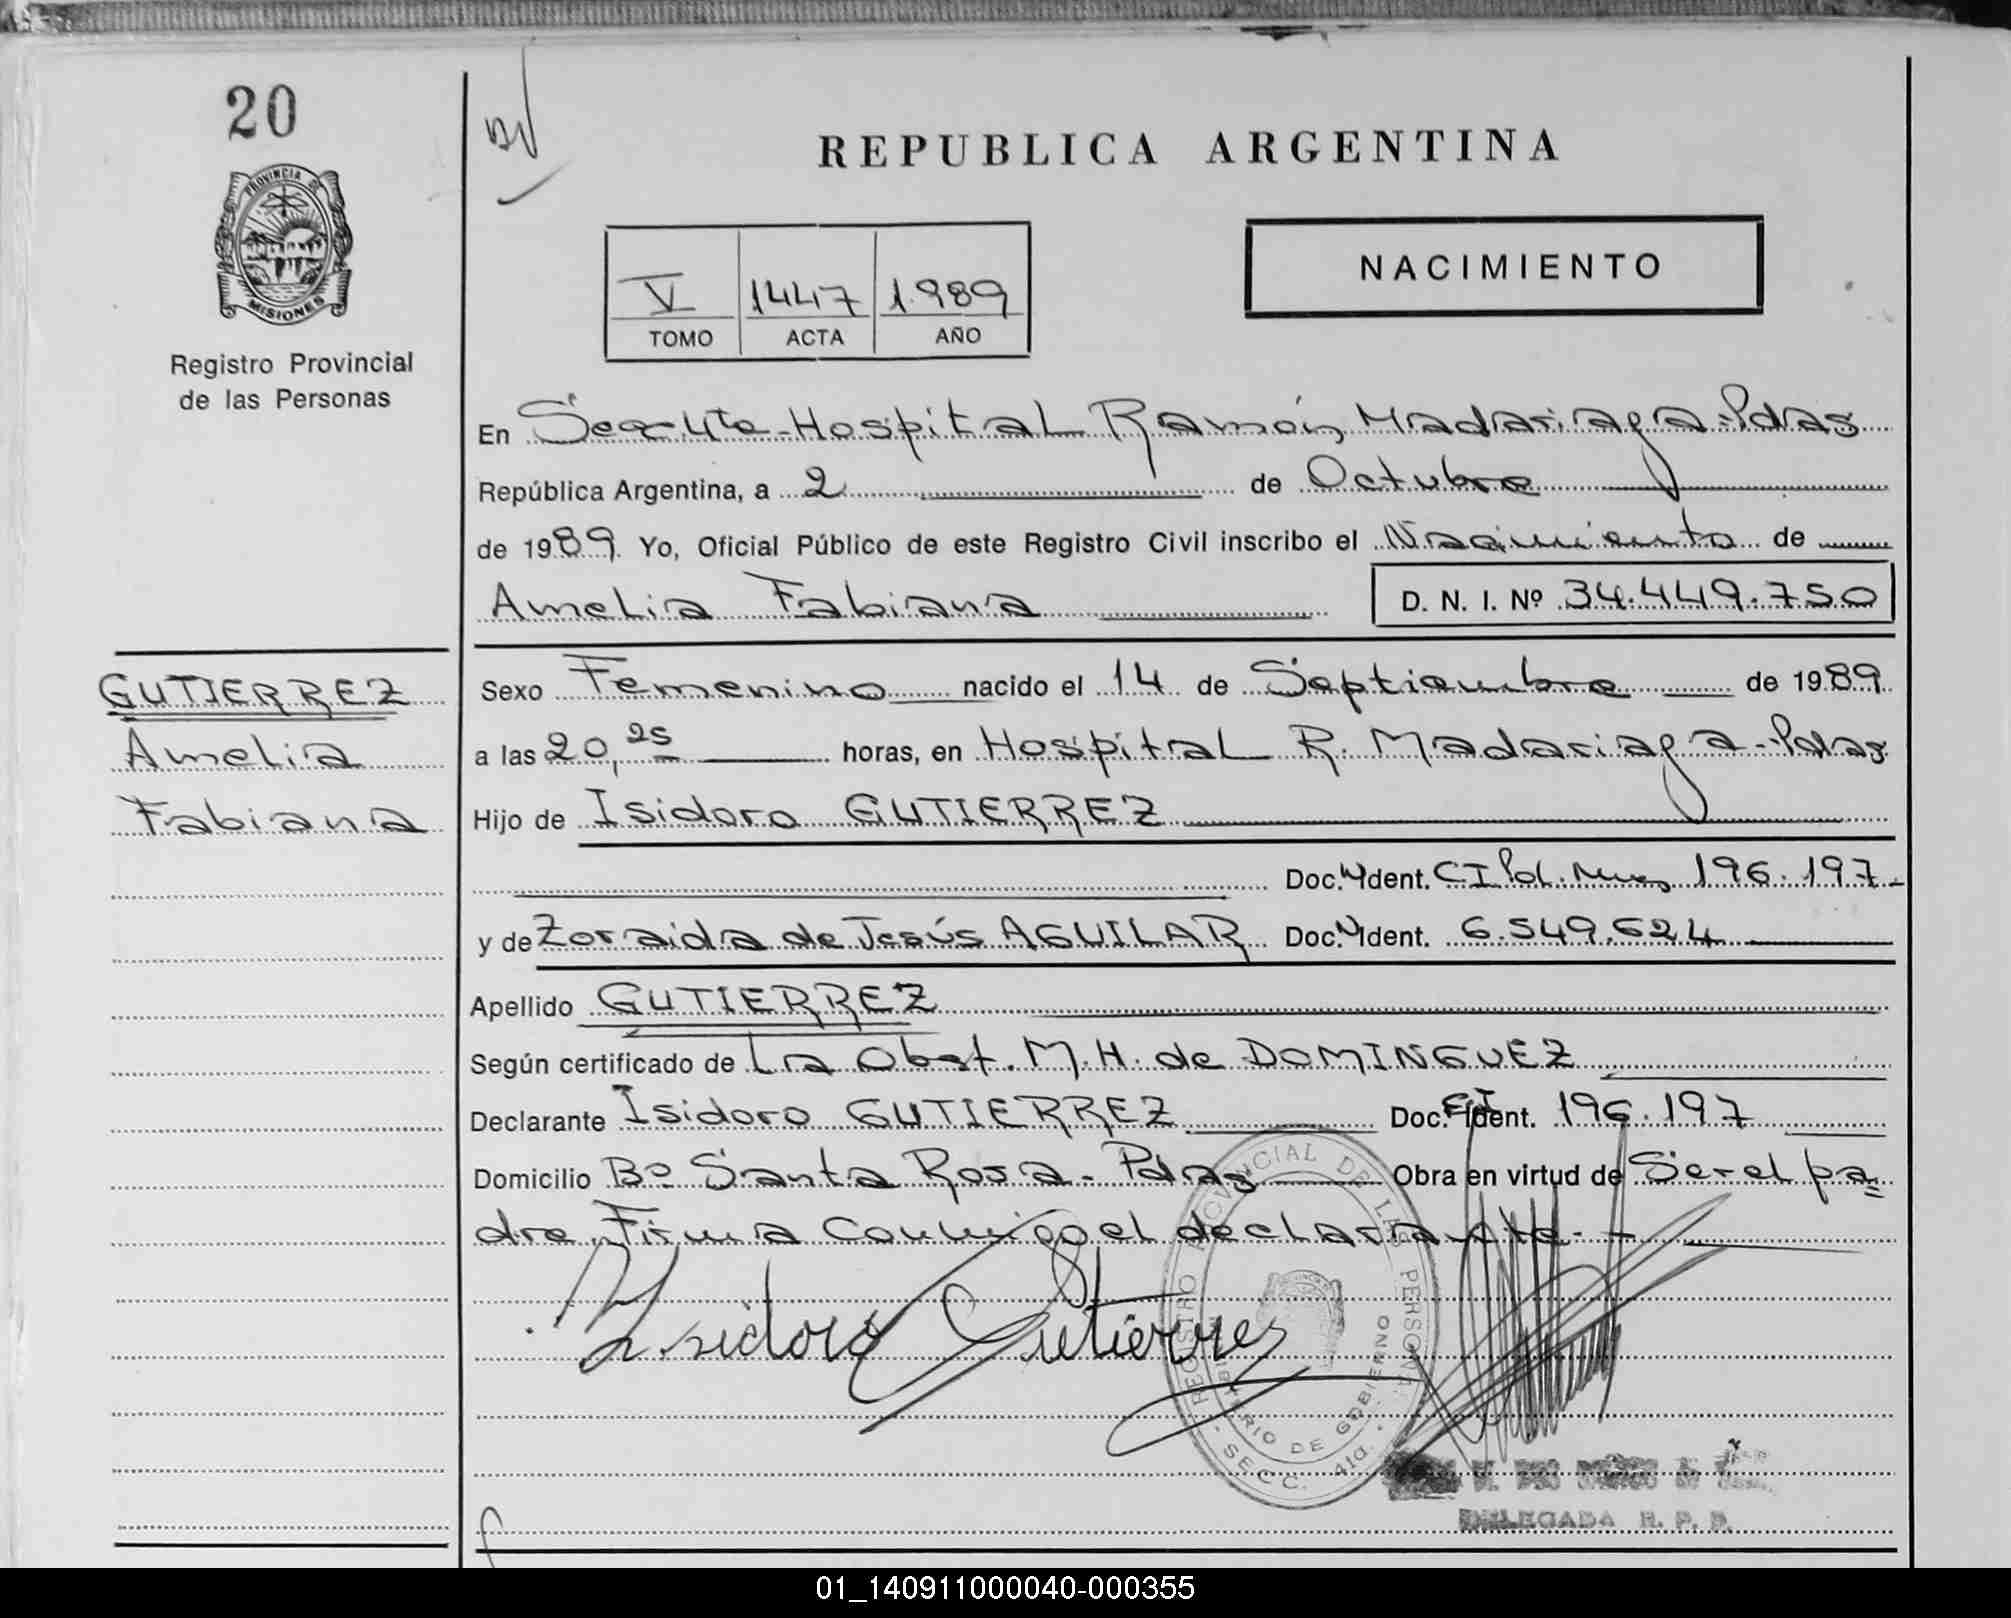 20
PROVINCIA DE
MISIONES
Registro Provincial
de las Personas
REPUBLICA ARGENTINA
V 1447 1.989
TOMO ACTA AÑO
NACIMIENTO
En Secc 4ta - Hospital Ramón Madariaga - Pdas
República Argentina, a 2 de Octubre
de 1989. Yo, Oficial Público de este Registro Civil inscribo el Nacimiento de
Amelia Fabiana D. N. I. Nº 34.449.750
GUTIERREZ
Amelia
Fabiana
Sexo Femenino nacido el 14 de Septiembre de 1989
a las 20,25 horas, en Hospital R. Madariaga - Pdas
Hijo de Isidoro GUTIERREZ
Doc. Ident. CI Pol. Mnes 196.197.-
y de Zoraida de Jesús AGUILAR Doc. Ident. 6.549.624
Apellido GUTIERREZ
Según certificado de La Obst. M. H. de DOMINGUEZ
Declarante Isidoro GUTIERREZ Doc. CI Ident. 196.197
Domicilio Bº Santa Rosa - Pdas Obra en virtud de Ser el pa=
dre. Firma conmigo el declarante. -
Isidoro Gutierres
REGISTRO PROVINCIAL DE LAS PERSONAS
MINISTERIO DE GOBIERNO
- SECC. 4ta. -
DELEGADA R. P. P.
01_140911000040-000355